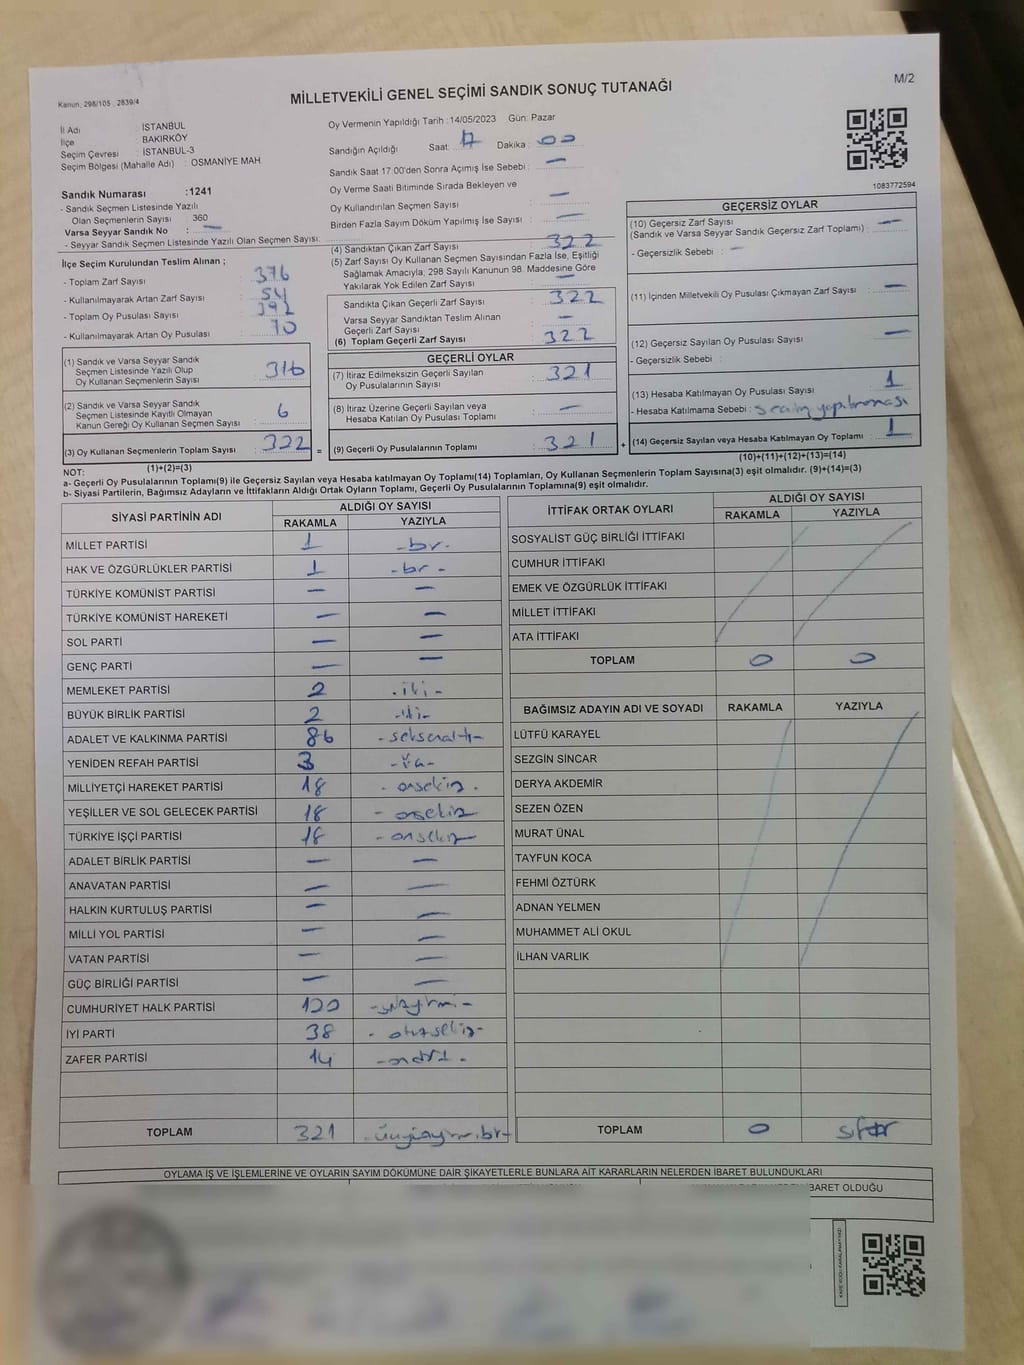 Kanun: 298/105 , 2839/4
M/2
MİLLETVEKİLİ GENEL SEÇİMİ SANDIK SONUÇ TUTANAĞI
İl Adı : İSTANBUL
İlçe : BAKIRKÖY
Seçim Çevresi : İSTANBUL-3
Seçim Bölgesi (Mahalle Adı) : OSMANİYE MAH.
Sandık Numarası :1241
- Sandık Seçmen Listesinde Yazılı
Olan Seçmenlerin Sayısı : 360
Varsa Seyyar Sandık No : —
- Seyyar Sandık Seçmen Listesinde Yazılı Olan Seçmen Sayısı:
Oy Vermenin Yapıldığı Tarih :14/05/2023 Gün: Pazar
Sandığın Açıldığı Saat: 17 Dakika : 00
Sandık Saat 17.00'den Sonra Açımış İse Sebebi : —
Oy Verme Saati Bitiminde Sırada Bekleyen ve
Oy Kullandırılan Seçmen Sayısı : —
Birden Fazla Sayım Döküm Yapılmış İse Sayısı : —
1083772594
İlçe Seçim Kurulundan Teslim Alınan ;
- Toplam Zarf Sayısı : 376
- Kullanılmayarak Artan Zarf Sayısı : 54
- Toplam Oy Pusulası Sayısı : 392
- Kullanılmayarak Artan Oy Pusulası : 70
(1) Sandık ve Varsa Seyyar Sandık
Seçmen Listesinde Yazılı Olup
Oy Kullanan Seçmenlerin Sayısı : 316
(2) Sandık ve Varsa Seyyar Sandık
Seçmen Listesinde Kayıtlı Olmayan
Kanun Gereği Oy Kullanan Seçmen Sayısı : 6
(3) Oy Kullanan Seçmenlerin Toplam Sayısı : 322
(1)+(2)=(3)
(4) Sandıktan Çıkan Zarf Sayısı : 322
(5) Zarf Sayısı Oy Kullanan Seçmen Sayısından Fazla İse, Eşitliği
Sağlamak Amacıyla, 298 Sayılı Kanunun 98. Maddesine Göre
Yakılarak Yok Edilen Zarf Sayısı : —
Sandıkta Çıkan Geçerli Zarf Sayısı : 322
Varsa Seyyar Sandıktan Teslim Alınan
Geçerli Zarf Sayısı : —
(6) Toplam Geçerli Zarf Sayısı : 322
GEÇERLİ OYLAR
(7) İtiraz Edilmeksizin Geçerli Sayılan
Oy Pusulalarının Sayısı : 321
(8) İtiraz Üzerine Geçerli Sayılan veya
Hesaba Katılan Oy Pusulası Toplamı : —
= (9) Geçerli Oy Pusulalarının Toplamı : 321 +
GEÇERSİZ OYLAR
(10) Geçersiz Zarf Sayısı
(Sandık ve Varsa Seyyar Sandık Geçersiz Zarf Toplamı) : —
- Geçersizlik Sebebi : —
(11) İçinden Milletvekili Oy Pusulası Çıkmayan Zarf Sayısı : —
(12) Geçersiz Sayılan Oy Pusulası Sayısı : —
- Geçersizlik Sebebi :
(13) Hesaba Katılmayan Oy Pusulası Sayısı : 1
- Hesaba Katılmama Sebebi : seçim yapılmaması
(14) Geçersiz Sayılan veya Hesaba Katılmayan Oy Toplamı : 1
(10)+(11)+(12)+(13)=(14)
NOT:
a- Geçerli Oy Pusulalarının Toplamı(9) ile Geçersiz Sayılan veya Hesaba katılmayan Oy Toplamı(14) Toplamları, Oy Kullanan Seçmenlerin Toplam Sayısına(3) eşit olmalıdır. (9)+(14)=(3)
b- Siyasi Partilerin, Bağımsız Adayların ve İttifakların Aldığı Ortak Oyların Toplamı, Geçerli Oy Pusulalarının Toplamına(9) eşit olmalıdır.
SİYASİ PARTİNİN ADI ALDIĞI OY SAYISI
RAKAMLA YAZIYLA
MİLLET PARTİSİ 1 -bir-
HAK VE ÖZGÜRLÜKLER PARTİSİ 1 -bir-
TÜRKİYE KOMÜNİST PARTİSİ — —
TÜRKİYE KOMÜNİST HAREKETİ — —
SOL PARTİ — —
GENÇ PARTİ — —
MEMLEKET PARTİSİ 2 -iki-
BÜYÜK BİRLİK PARTİSİ 2 -iki-
ADALET VE KALKINMA PARTİSİ 86 -seksenaltı-
YENİDEN REFAH PARTİSİ 3 -üç-
MİLLİYETÇİ HAREKET PARTİSİ 18 -onsekiz-
YEŞİLLER VE SOL GELECEK PARTİSİ 18 -onsekiz
TÜRKİYE İŞÇİ PARTİSİ 18 -onsekiz
ADALET BİRLİK PARTİSİ — —
ANAVATAN PARTİSİ — —
HALKIN KURTULUŞ PARTİSİ — —
MİLLİ YOL PARTİSİ — —
VATAN PARTİSİ — —
GÜÇ BİRLİĞİ PARTİSİ — —
CUMHURİYET HALK PARTİSİ 120 -yüzyirmi-
İYİ PARTİ 38 -otuzsekiz-
ZAFER PARTİSİ 14 -ondört-
TOPLAM 321 -üçyüzyirmibir-
İTTİFAK ORTAK OYLARI ALDIĞI OY SAYISI
RAKAMLA YAZIYLA
SOSYALİST GÜÇ BİRLİĞİ İTTİFAKI
CUMHUR İTTİFAKI
EMEK VE ÖZGÜRLÜK İTTİFAKI
MİLLET İTTİFAKI
ATA İTTİFAKI
TOPLAM 0 0
BAĞIMSIZ ADAYIN ADI VE SOYADI RAKAMLA YAZIYLA
LÜTFÜ KARAYEL
SEZGİN SİNCAR
DERYA AKDEMİR
SEZEN ÖZEN
MURAT ÜNAL
TAYFUN KOCA
FEHMİ ÖZTÜRK
ADNAN YELMEN
MUHAMMET ALİ OKUL
İLHAN VARLIK
TOPLAM 0 sıfır
OYLAMA İŞ VE İŞLEMLERİNE VE OYLARIN SAYIM DÖKÜMÜNE DAİR ŞİKAYETLERLE BUNLARA AİT KARARLARIN NELERDEN İBARET BULUNDUKLARI
BARET OLDUĞU